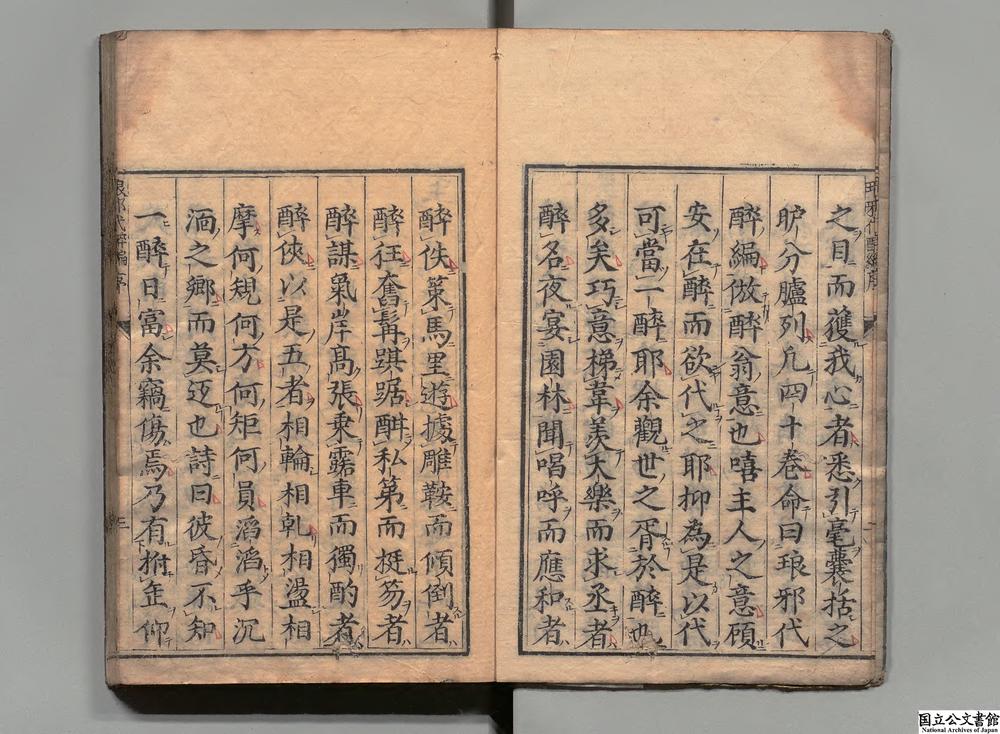 之目而蒦我心者悉引毫囊括之
眆分臚列凢四十卷命曰琅邪代
醉編倣醉翁意也嘻主人之意顧
安在醉而欲代之耶抑為是以代
可當一醉耶余觀世之胥於醉也
多矣巧意梯葦羡大樂而求丞者
醉名夜宴園林聞喝呼而應和者
醉佚策馬里遊據雕鞍而傾倒者
醉狂奮髯踑踞酣私第而梃笏者
醉謀氣岸髙張乘露車而獨酌者
醉俠以是五者相輪相軋相盪相
摩何規何方何矩何員滔滔乎沉
湎之鄉而莫迓也詩曰彼昏不知
一醉日富余竊傷焉乃有拊缶仰
琅邪代醉編序
国立公文書館
National Archives of Japan